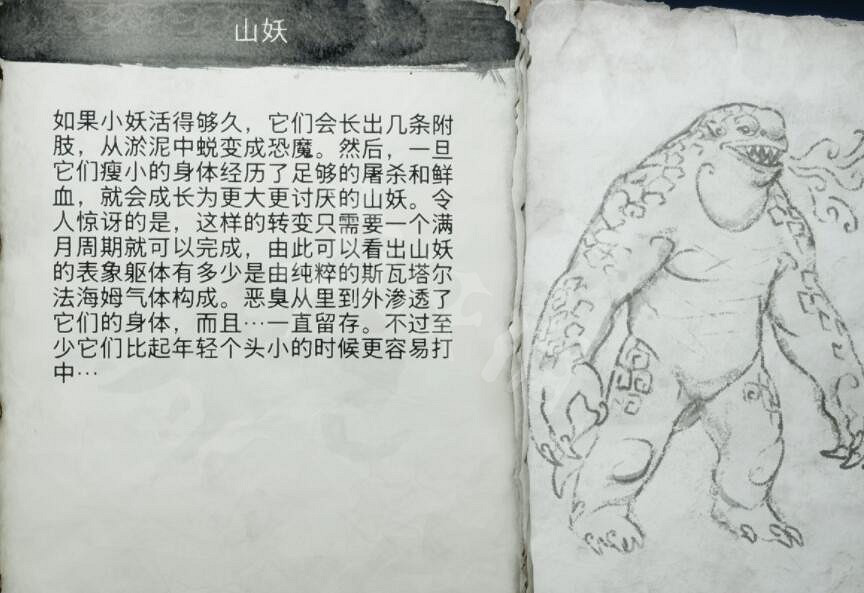 山妖
如果小妖活得够久，它们会长出几条附
肢，从淤泥中蜕变成恐魔。然后，一旦
它们瘦小的身体经历了足够的屠杀和鲜
血，就会成长为更大更讨厌的山妖。令
人惊讶的是，这样的转变只需要一个满
月周期就可以完成，由此可以看出山妖
的表象躯体有多少是由纯粹的斯瓦塔尔
法海姆气体构成。恶臭从里到外渗透了
它们的身体，而且…一直留存。不过至
少它们比起年轻个头小的时候更容易打
中…